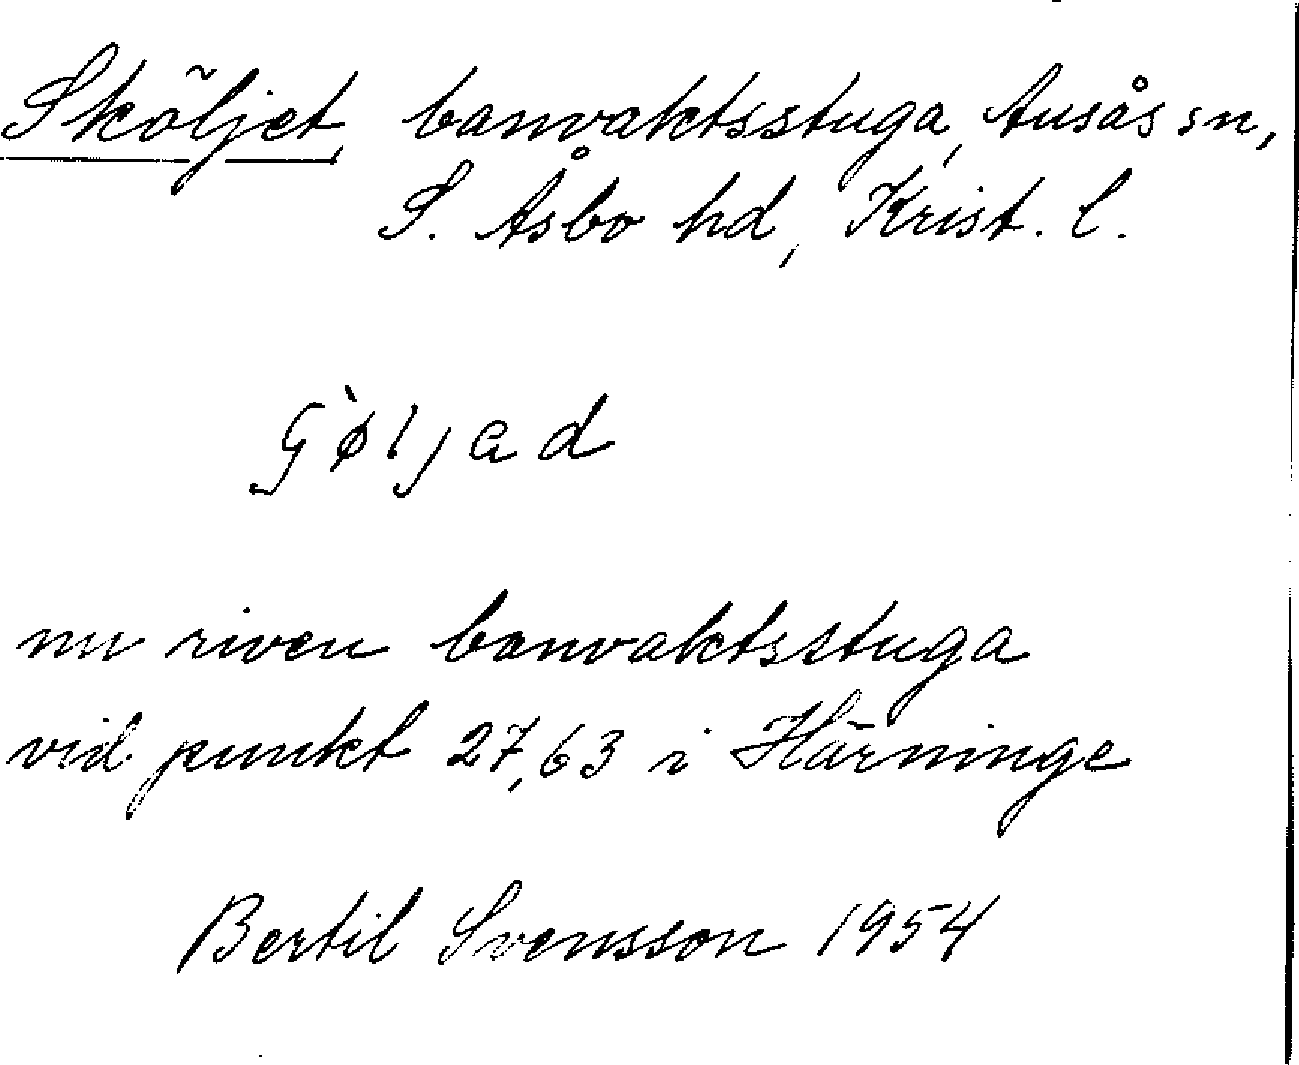 Sköljet, banvaktsstuga, Ausås sn,
S. Åsbo hd, Krist. l.
nu riven banvaktsstuga
vid punkt 27,63 i Härninge
Bertil Svensson 1954